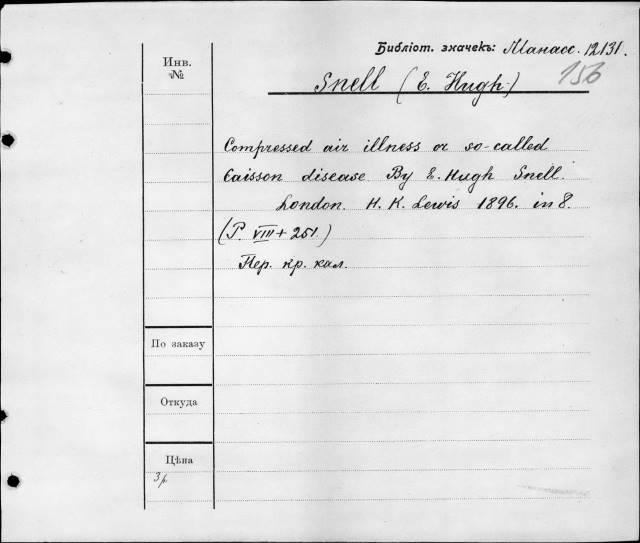 Библіот. значекъ: Манасс. 12131.
156
Инв.
№
Snell (E. Hugh)
Compressed air illness or so-called
Caisson disease By E. Hugh Snell.
London. H. K. Lewis 1896. in 8.
(P. VIII + 251.)
Пер. кр. кал.
По заказу
Откуда
Цѣна
3р